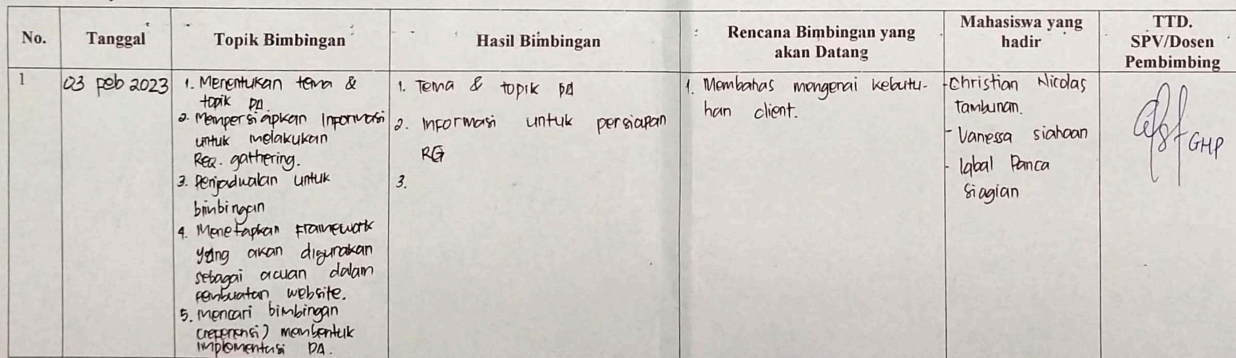 No.
Tanggal
Topik Bimbingan
Hasil Bimbingan
Rencana Bimbingan yang
akan Datang
Mahasiswa yang
hadir
TTD.
SPV/Dosen
Pembimbing
1
03 Feb 2023
1. Menentukan tema &
topik PA
2. Mempersiapkan Informasi
untuk melakukan
Req. gathering.
3. Penjadwalan untuk
bimbingan
4. Menetapkan Framework
yang akan digunakan
sebagai acuan dalam
pembuatan website.
5. Mencari bimbingan
(referensi) membentuk
implementasi PA.
1. Tema & topik PA
2. Informasi untuk persiapan
RG
3.
1. Membahas mengenai kebutu-
han client.
- Christian Nicolas
Tambunan.
- Vanessa siahaan
- Iqbal Panca
Siagian
GHP